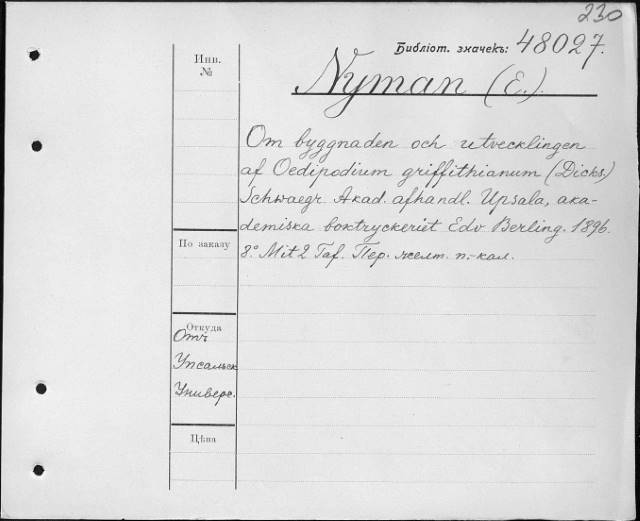 230
Библіот. значекъ: 48027.
Инв.
№
Nyman (E.).
Om byggnaden och utvecklingen
af Oedipodium griffithianum (Dicks)
Schwaegr. Akad. afhandl. Upsala, aka-
demiska boktryckeriet Edv Berling. 1896.
8° Mit 2 Taf. Пер. желт. п.-кал.
По заказу
Откуда
Отъ
Упсальск
Универс.
Цѣна